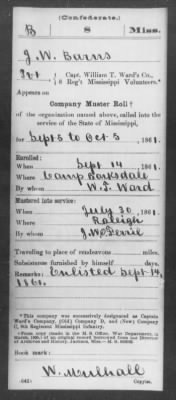 (Confederate.)
B | 8 | Miss.
J. W. Barns
Pvt., Capt. William T. Ward's Co.,
8 Reg't Mississippi Volunteers.*
Appears on
Company Muster Roll †
of the organization named above, called into the
service of the State of Mississippi,
for Sept 5 to Oct 5, 1861.
Enrolled:
When Sept 14, 1861.
Where Camp Barksdale
By whom W. T. Ward
Mustered into service:
When July 30, 1861.
Where Raleigh
By whom
Traveling to place of rendezvous miles.
Subsistence furnished by himself days.
Remarks: Enlisted Sept 14,
1861.
*This company was successively designated as Captain
Ward's Company, (Old) Company D, and (New) Company
8th Regiment Mississippi Infantry.
†From copy (made in the M. S. Office, War Department, in
of an original record borrowed from the Director
of Archives and History, Jackson, Miss.—M. S.
Book mark:
W. Mulhall
(642) Copyist.